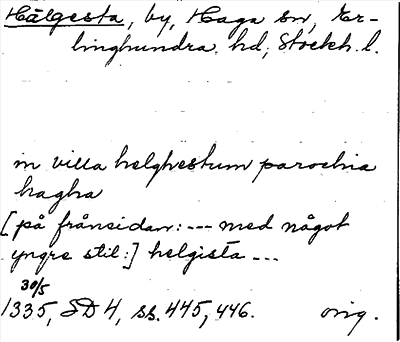 Hälgesta, by, Haga sn, Er-
linghundra hd, Stockh. l.
in villa helghestum parochia
hagha
[på frånsidan: --- med något
yngre stil:] helgista ---
30/5
1335, SD 4, ss. 445, 446. orig.